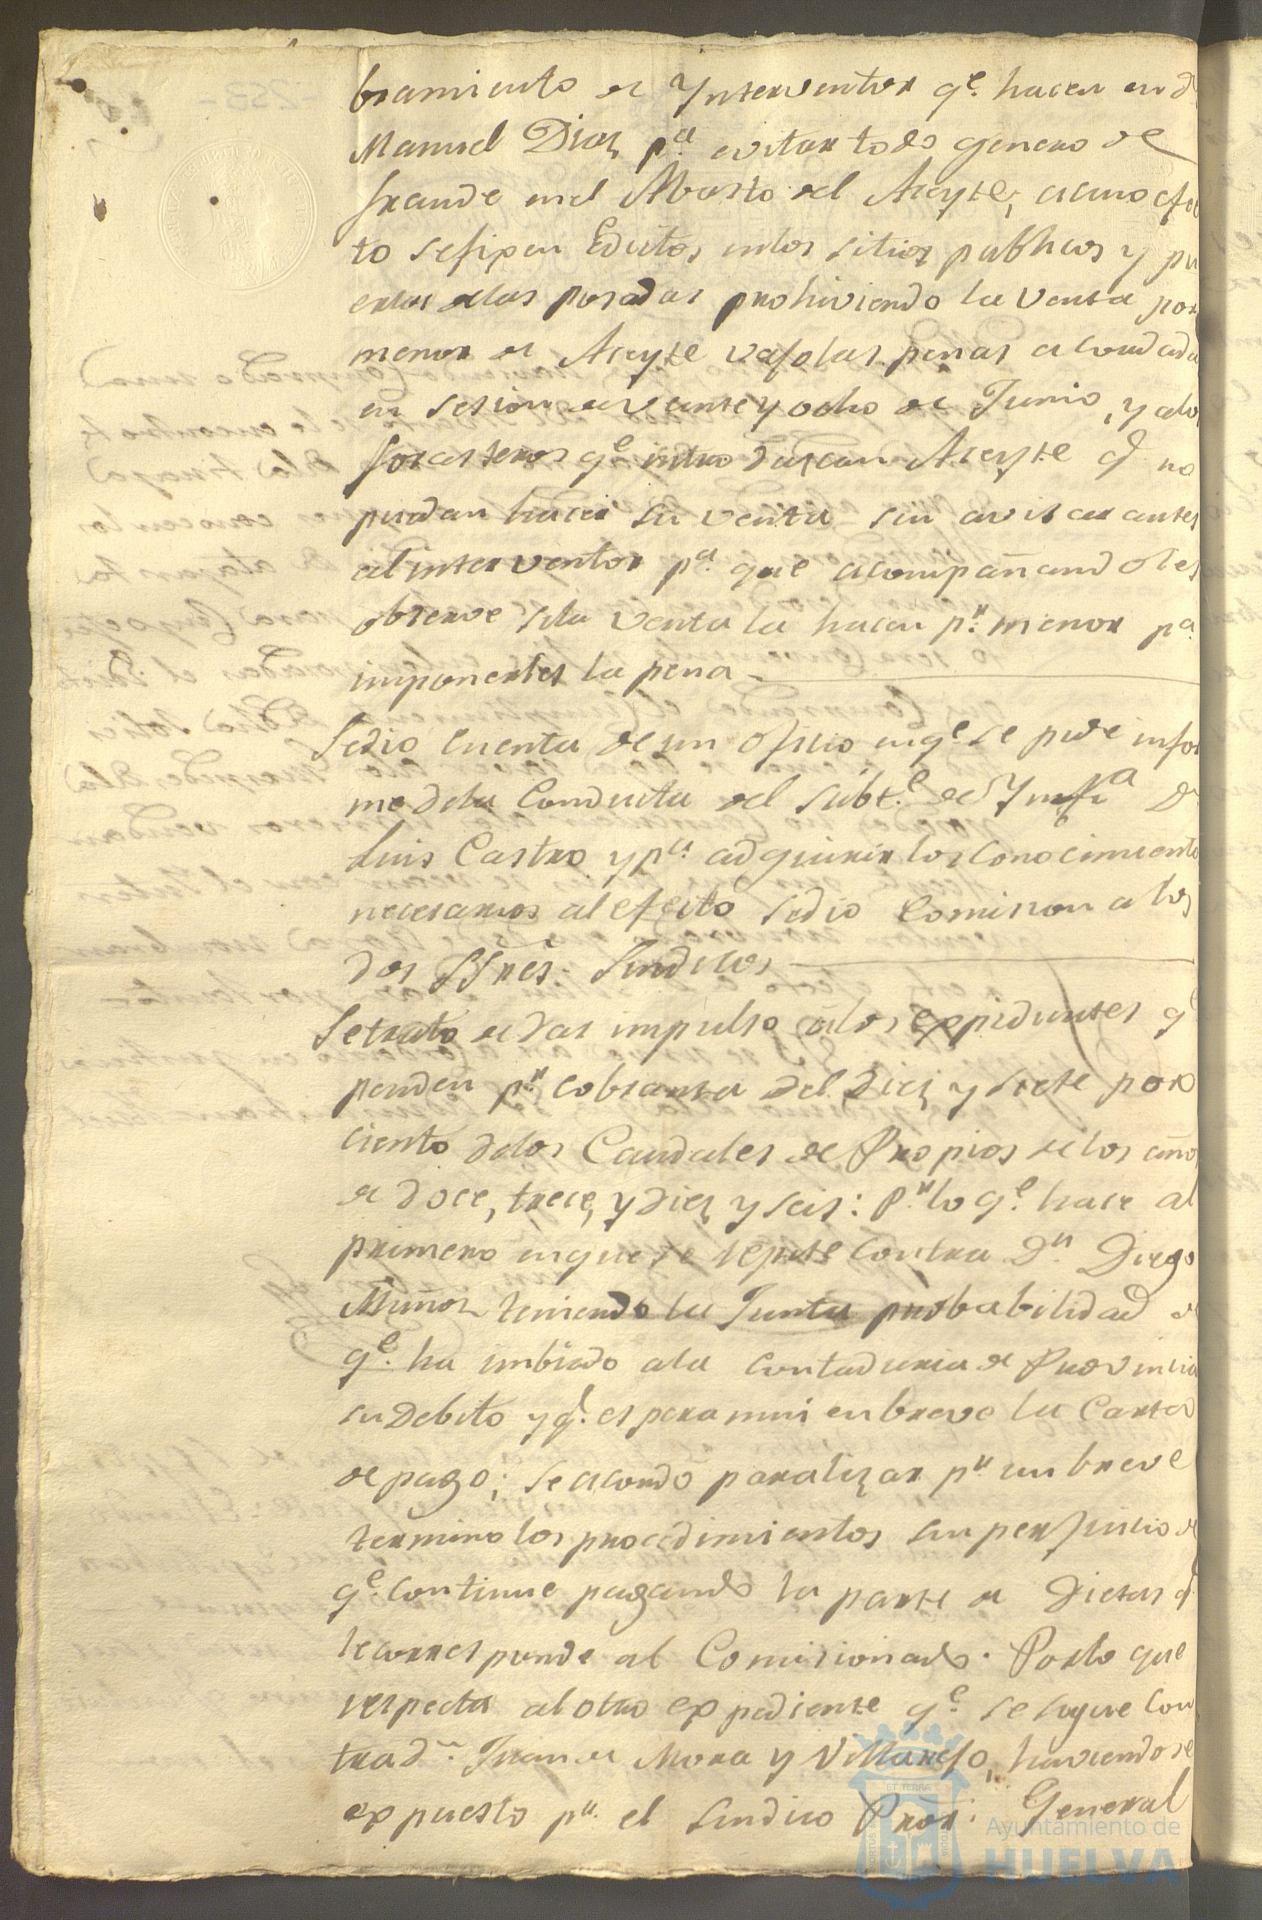 bramiento de Ynterventor qe. hacen en dn
Manuel Diaz, pa. evitar todo genero de
fraude enel Abasto del Aceyte, acuio efec
to sefixen Edictos enlos sitios publicos y pu
ertas delas posadas prohiviendo la venta por
menor de Aceyte vajolas penas acordadas
en sesion de veinte y ocho de Junio, y alos
forasteros qe. introduzcan Aceyte q. no
puedan hacer su venta sin avisar antes
al interventor pa. que acompañandoles
observe sila venta la hacen pr. menor pa.
imponerles la pena
Sedio cuenta de un oficio enqe. se pide infor
me dela Conducta del Subte. de Ynfa. Dn
Luis Castro y pa. adquirir los conocimientos
necesarios al efecto sedio comision a los
dos SSres. Sindicos
Setrato de dar impulso alos expedientes qe
penden pr. cobranza del Diez y siete por
ciento delos Caudales de Propios de los años
de doce, trece, y diez y seis: Pr. lo qe. hace al
primero enque se repite contra Dn. Diego
Muñoz teniendo la Junta probabilidad de
qe. ha imbiado ala Contaduria de Provincia
su Debito y q. espera mui en breve la Carta
de pago; se acordó paralizar pr. un breve
termino los procedimientos sin perjuicio de
qe. continue pagando la parte de Dietas q.
le corresponde al Comisionado. Porlo que
respecta al otro expediente qe. se sigue con
tra dn. Juan de Mora y Villarejo, haviendose
expuesto pr. el Sindico Pror. General
ET TERRA
Ayuntamiento de
HUELVA